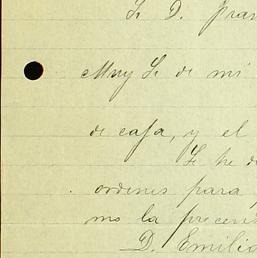 Sr D. Fran
Muy Sr de mi
de casa, y el
Se he d
ordenes para
mo la presen
D. Emilio